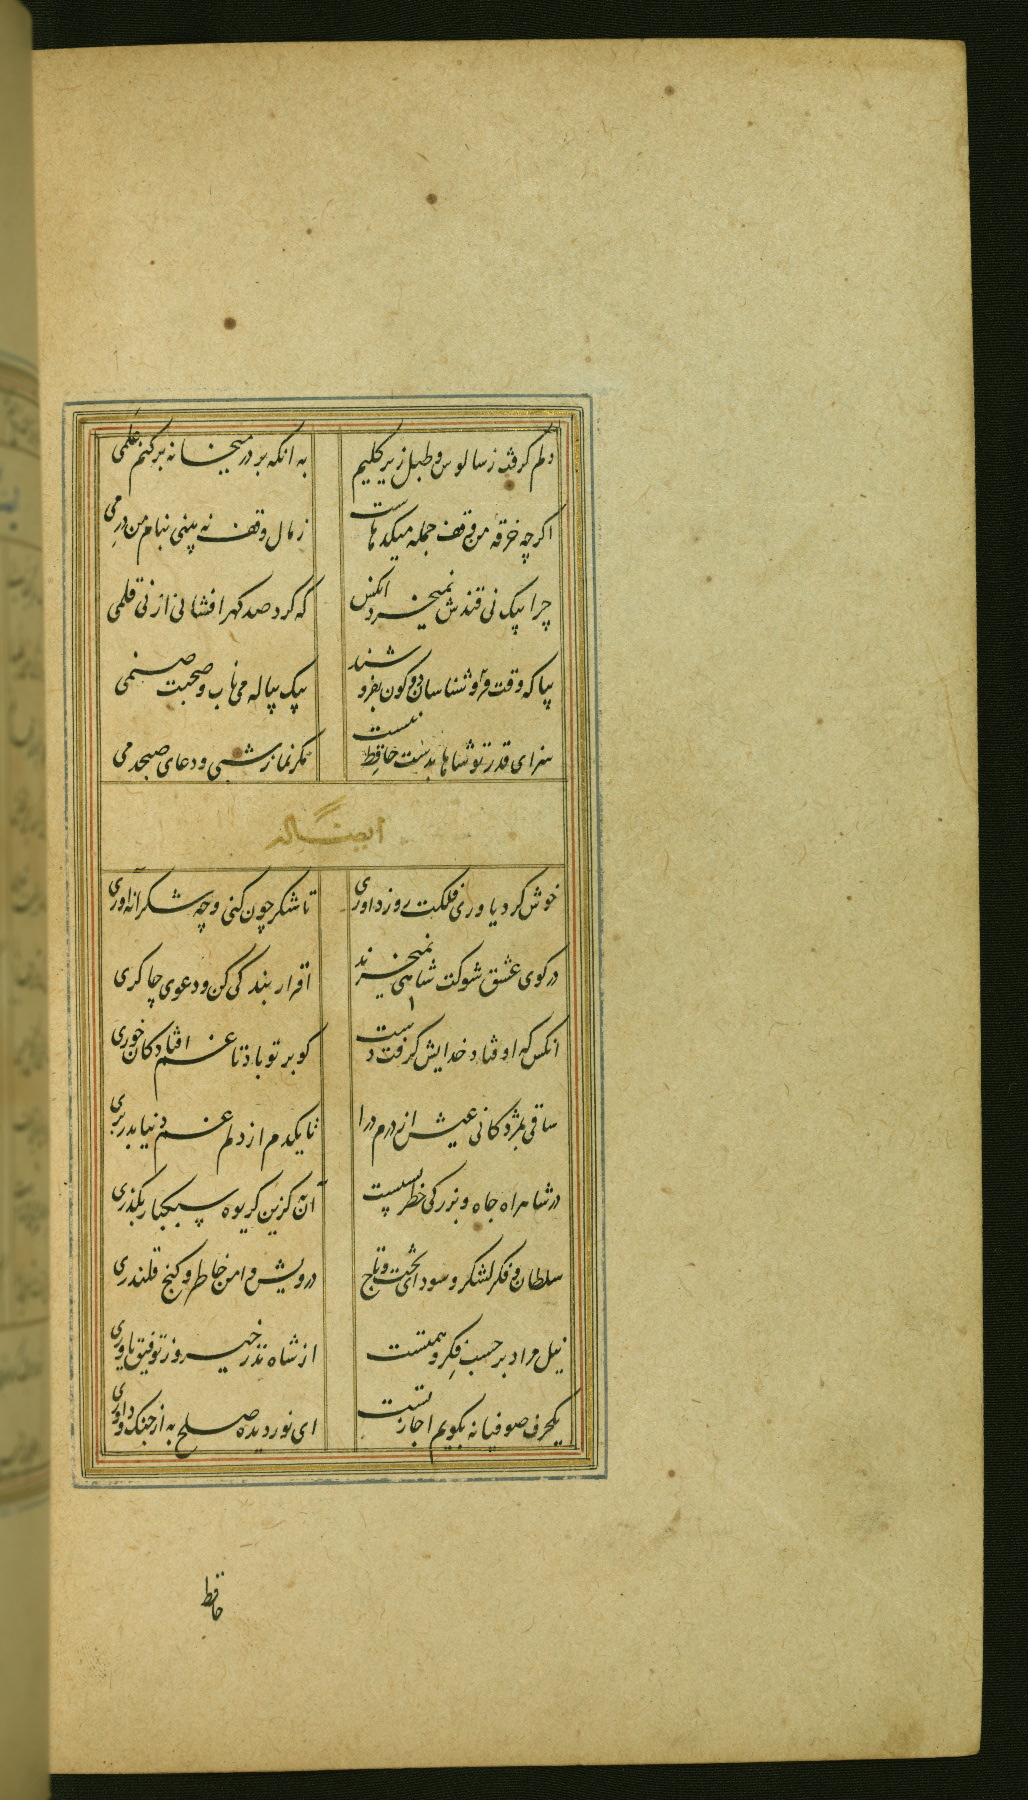 دلم گرفت ز سالوس و طبل زیر گلیم به انکه بر در میخانه برکنم علمی
اگرچه خرقه من وقف جمله میکدهاست ز مال وقف نه بینی بنام من درمی
چرا بیک نی قندش نمیخرد انکس که کرد صد گهر افشانی از نی قلمی
بیا که وقت شناسان دو کون بفروشند بیک پیاله می ناب و صحبت صنمی
سزای قدر تو شاها بدست حافظ نیست مگر نماز شبی و دعای صبحدمی
ایضاً له
خوش کرد یاوری فلکت روز داوری تا شکر چون کنی و چه شکرانه آوری
در کوی عشق شوکت شاهی نمیخرند اقرار بندگی کن و دعوی چاکری
انکس که اوفتاد خدایش گرفت دست گو بر تو باد تا غم افتادگان خوری
ساقی بمژدگانی عیش از درم درا تا یکدم از دلم غم دنیا بدر بری
در شاهراه جاه و بزرگی خطر بسیست آن به کزین گریوه سبکبار بگذری
سلطان و فکر لشکر و سودای تخت و تاج درویش و امن خاطر و کنج قلندری
نیل مراد بر حسب فکر و همتست از شاه نذر خیر و ز توفیق یاوری
یکحرف صوفیانه بگویم اجازتست ای نور دیده صلح به از جنگ و داوری
حافظ